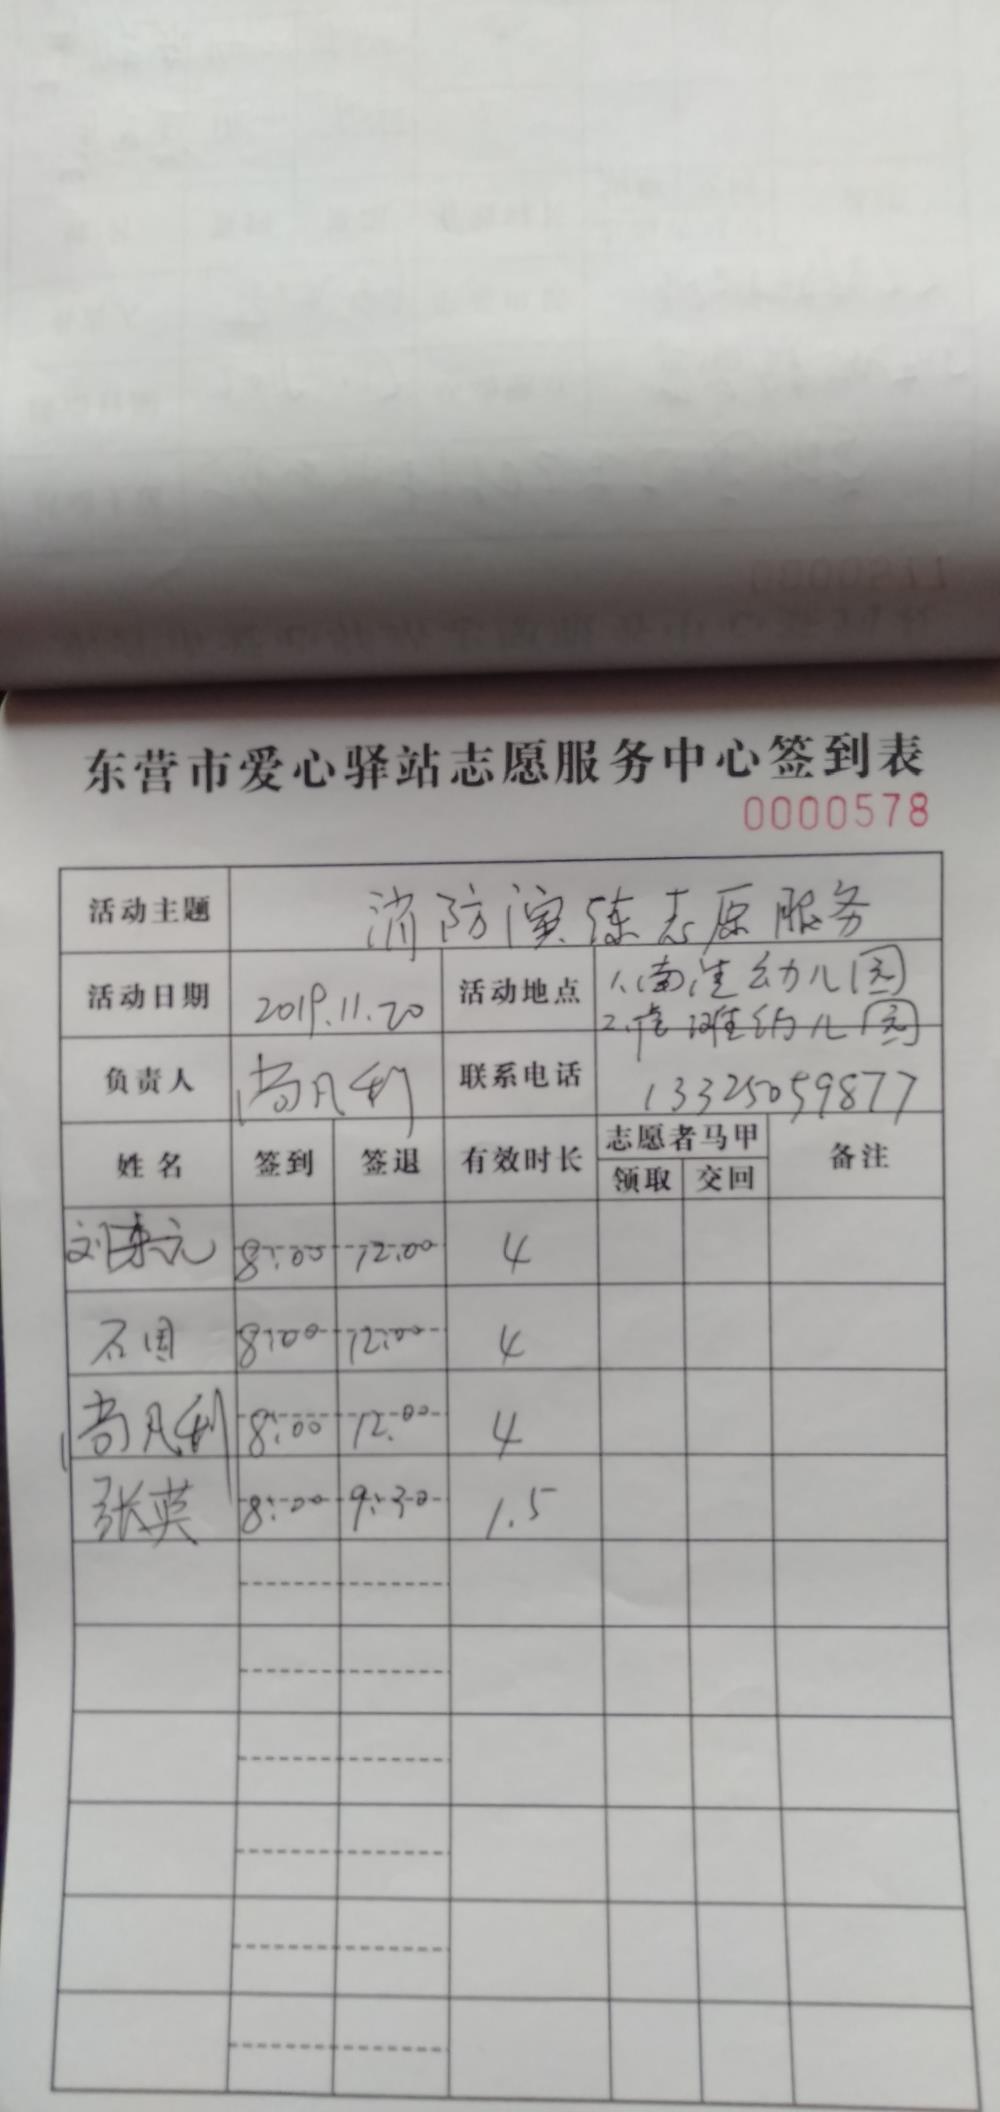 东营市爱心驿站志愿服务中心签到表
0000578
活动主题 消防演练志愿服务
活动日期 2019.11.20 活动地点 1.南洼幼儿园
2. 幼儿园
负责人 尚凡利 联系电话 13325059877
姓名 签到 签退 有效时长 志愿者马甲 备注
领取 交回
刘 元 8:00 12:00 4
石国 8:00 12:00 4
尚凡利 8:00 12:00 4
张英 8:00 9:30 1.5